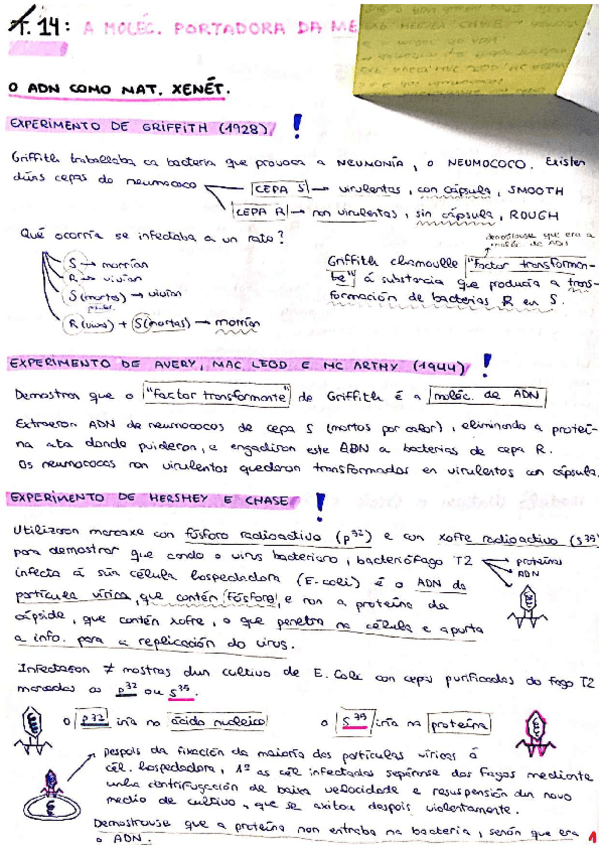 T. 14: A MOLÉC. PORTADORA DA ME
O ADN COMO MAT. XENÉT.
EXPERIMENTO DE GRIFFITH (1928) !
Griffith traballaba ca bacteria que provoca a NEUMONÍA, o NEUMOCOCO. Existen
dúas cepas do neumococo
CEPA S → virulentas, con cápsula, SMOOTH
CEPA R → non virulentas, sin cápsula, ROUGH
Qué ocorría se infectaba a un rato?
S → morrían
R → vivían
S (mortas) → vivían
R (vivas) + S (mortas) → morrían
demostrouse que era a
moléc. de ADN
Griffith chamoulle "factor transforman-
te" á substancia que producía a trans-
formación de bacterias R en S.
EXPERIMENTO DE AVERY, MAC LEOD E MC ARTHY (1944) !
Demostran que o "factor transformante" de Griffith é a moléc. de ADN
Extraeron ADN de neumococos de cepa S (mortos por calor), eliminando a proteí-
na ata donde puideron, e engadiron este ADN a bacterias de cepa R.
Os neumococos non virulentos quedaron transformados en virulentos con cápsula.
EXPERIMENTO DE HERSHEY E CHASE !
Utilizaron marcaxe con fósforo radioactivo (p³²) e con xofre radioactivo (s³⁵)
para demostrar que cando o virus bacteriano, bacteriófago T2
proteínas
ADN
infecta á súa célula hospedadora (E. coli) é o ADN da
partícula vírica, que contén fósforo, e non a proteína da
cápside, que contén xofre, o que penetra na célula e aporta
a info. para a replicación do virus.
Infectaron ≠ mostras dun cultivo de E. Coli con cepas purificadas do fago T2
marcadas con p³² ou s³⁵.
o p³² iría no ácido nucleico
o s³⁵ iría na proteína
Despois da fixación da maioría das partículas víricas á
cél. hospedadora, 1º as cél infectadas sepáranse dos fagos mediante
unha centrifugación de baixa velocidade e resuspensión dun novo
medio de cultivo, que se axitou despois violentamente.
Demostrouse que a proteína non entraba na bacteria, senón que era
o ADN.
1